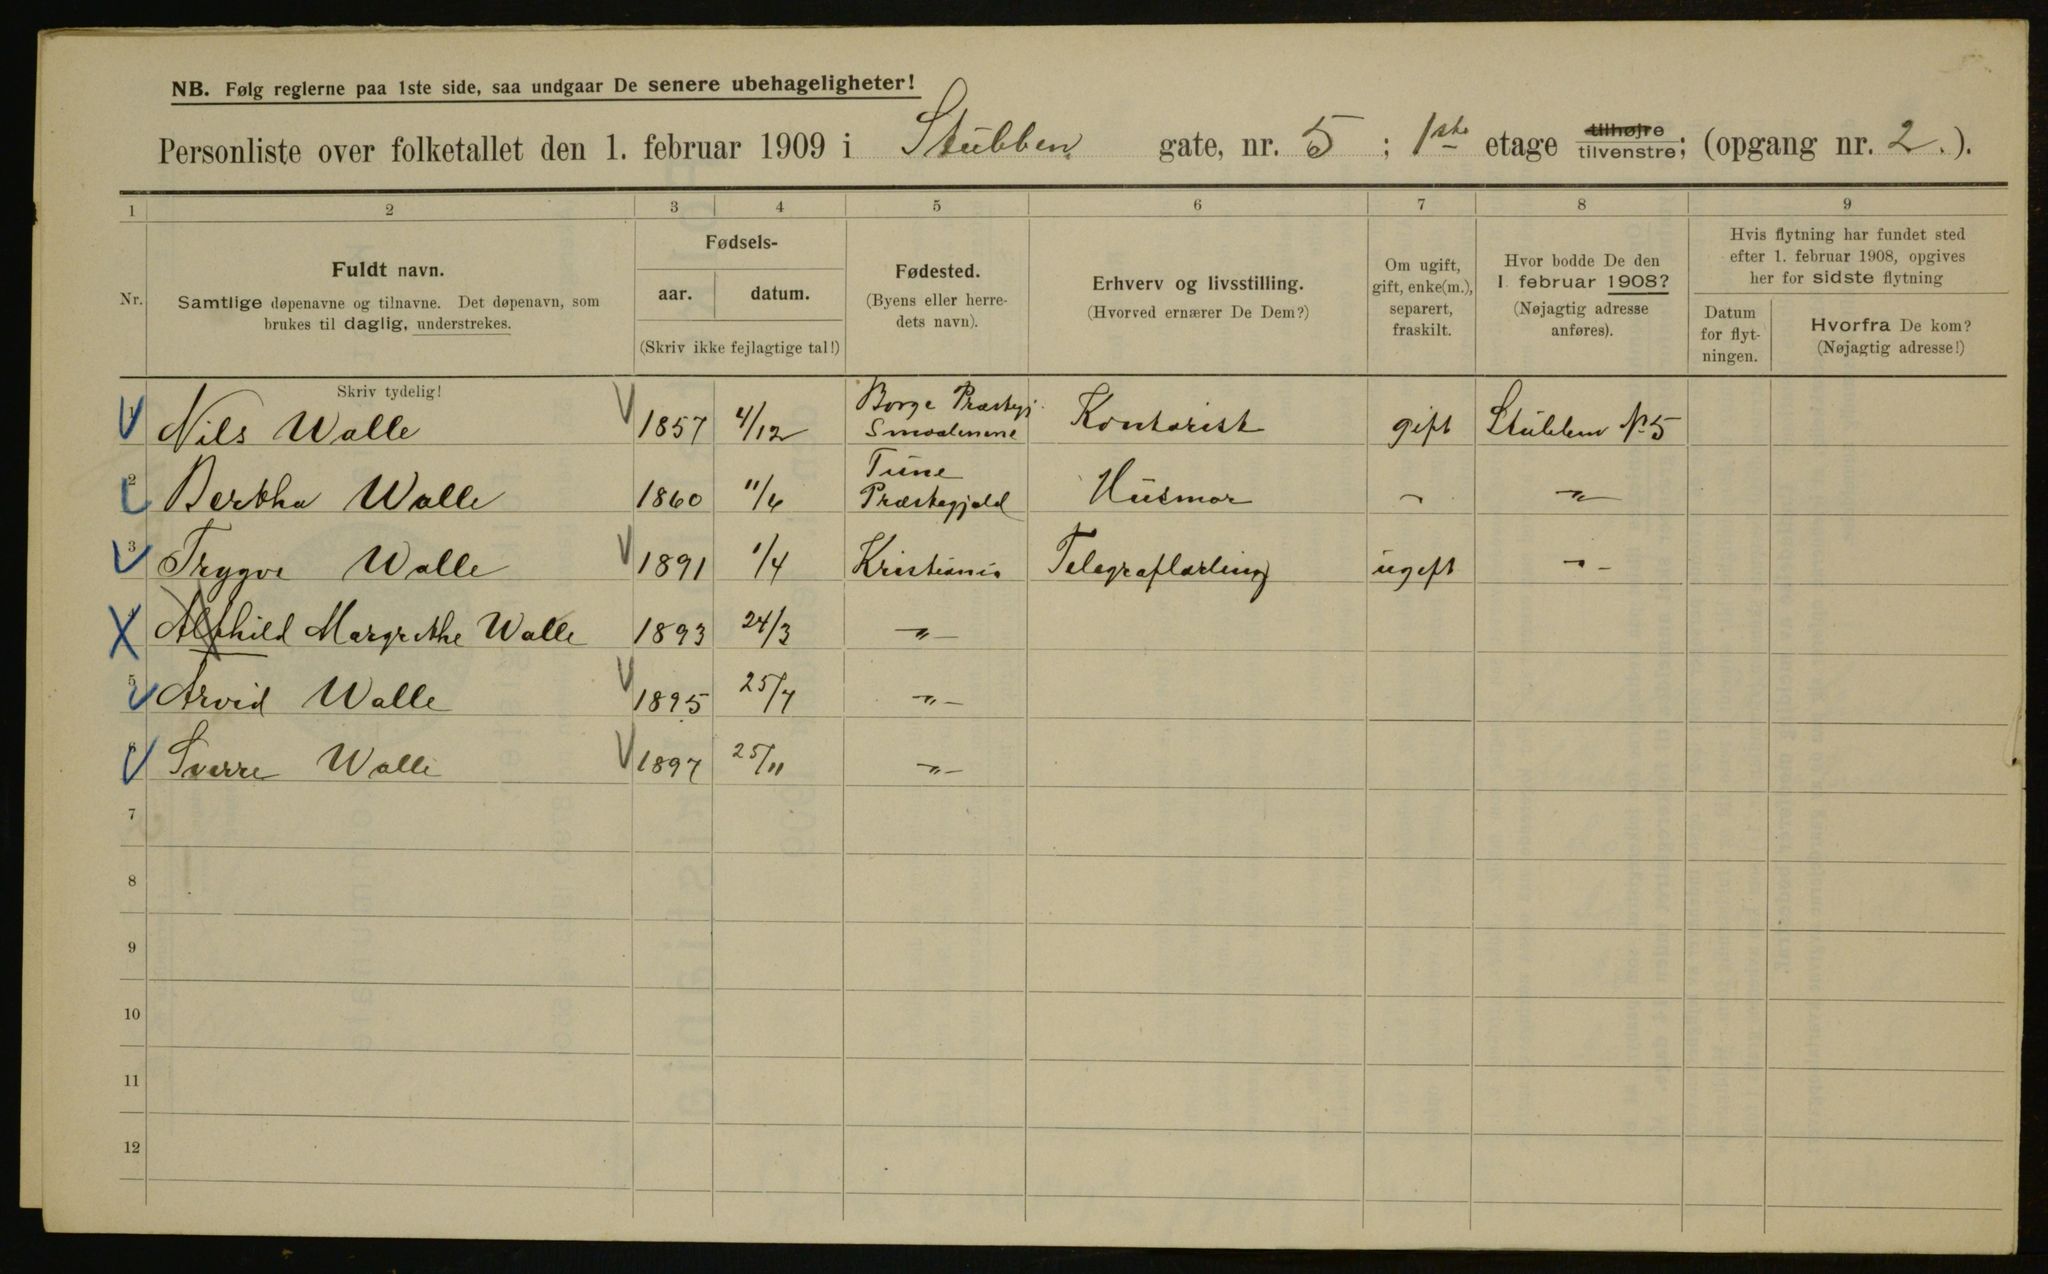 NB. Følg reglerne paa 1ste side, saa undgaar De senere ubehageligheter!
Personliste over folketallet den 1. februar 1909 i Stubben gate, nr. 5 ; 1ste etage tilhøjre tilvenstre; (opgang nr. 2.).
1 2 3 4 5 6 7 8 9
Nr.
Fuldt navn.
Samtlige døpenavne og tilnavne. Det døpenavn, som
brukes til daglig, understrekes.
Skriv tydelig!
Fødsels-
aar. datum.
(Skriv ikke fejlagtige tal!)
Fødested.
(Byens eller herre-
dets navn).
Erhverv og livsstilling.
(Hvorved ernærer De Dem?)
Om ugift,
gift, enke(m.),
separert,
fraskilt.
Hvor bodde De den
1. februar 1908?
(Nøjagtig adresse
anføres).
Hvis flytning har fundet sted
efter 1. februar 1908, opgives
her for sidste flytning
Datum
for flyt-
ningen.
Hvorfra De kom?
(Nøjagtig adresse!)
1 Nils Walle 1857 4/12 Borge Præstegj. Smaalenene Kontorist gift Stubben No 5
2 Bertha Walle 1860 11/6 Tune Præstegjeld Husmor " "
3 Trygve Walle 1891 1/4 Kristiania Telegraflærling ugift "
Margrethe Walle 1893 24/3 "
5 Arvid Walle 1895 25/4 "
6 Sverre Walle 1897 25/11 "
7
8
9
10
11
12